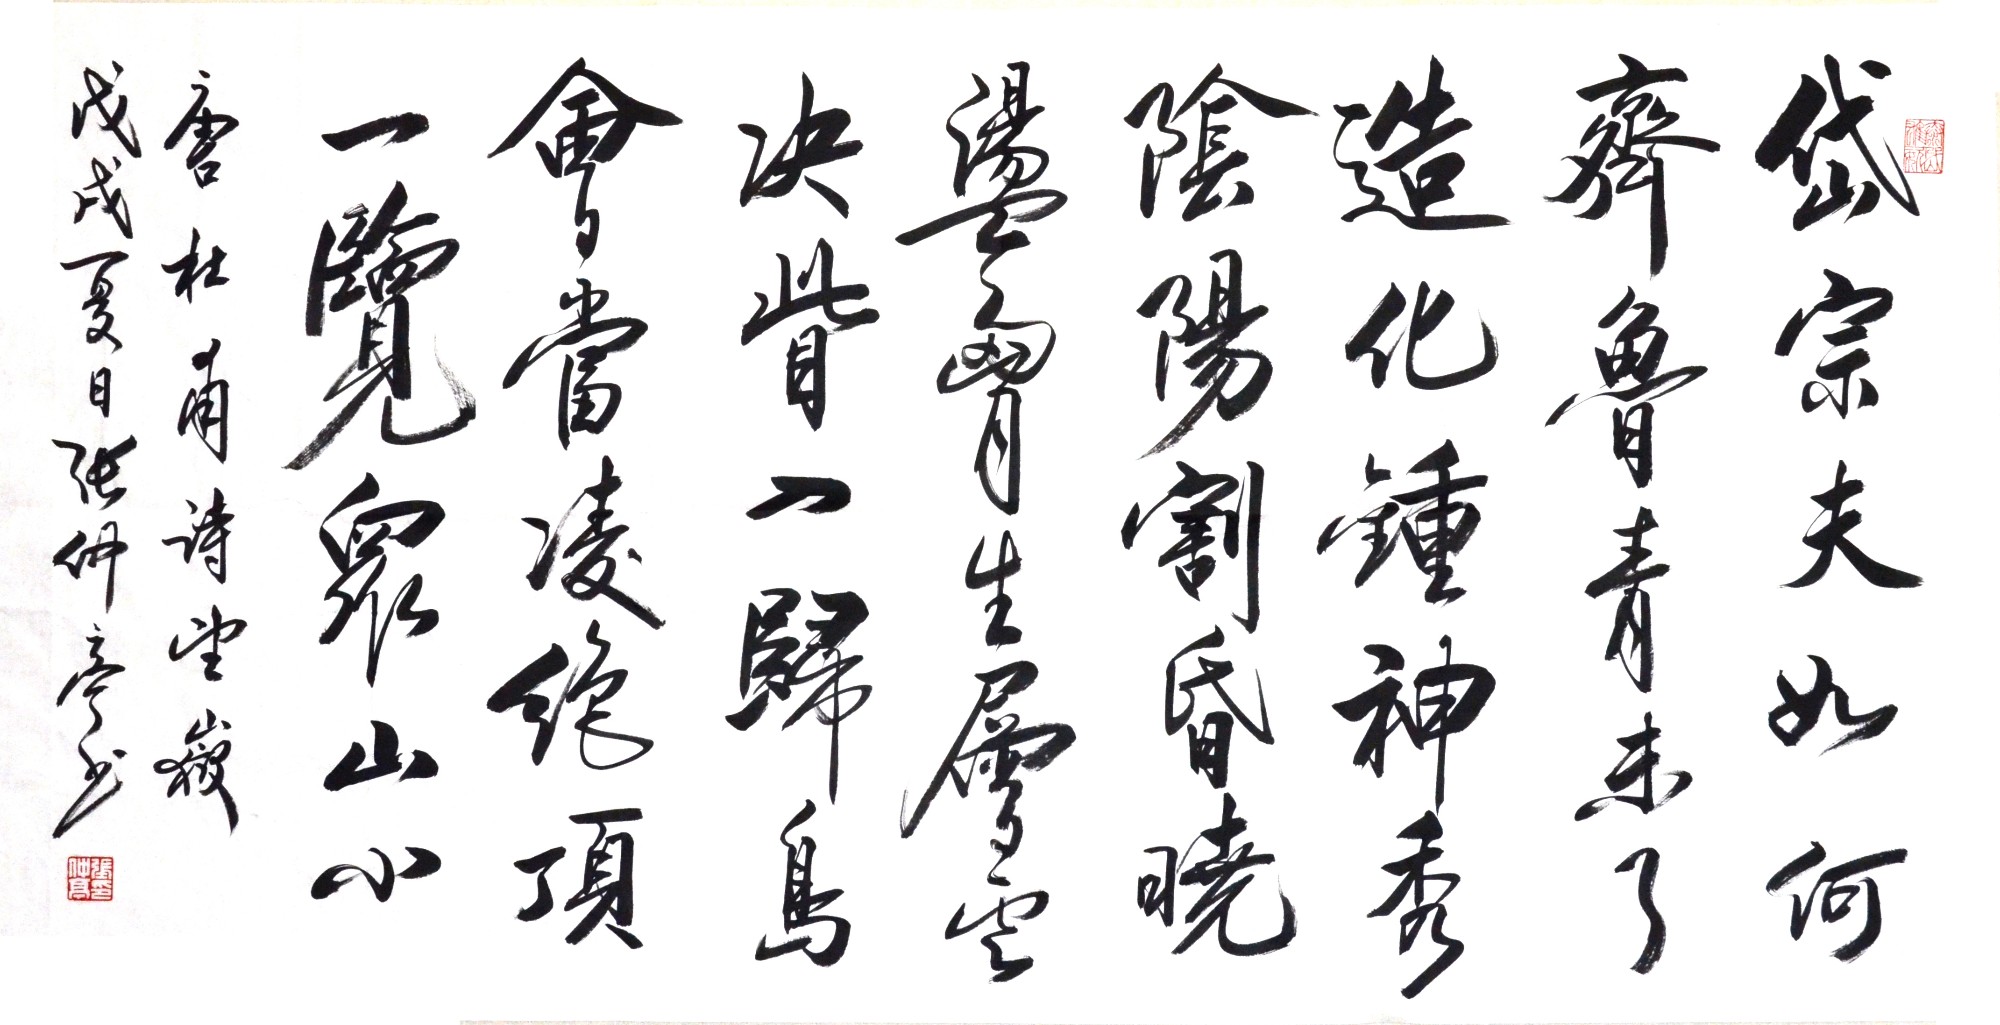 岱宗夫如何
齊魯青未了
造化鍾神秀
陰陽割昏曉
盪胷生層雲
決眥入歸鳥
會當凌絶頂
一覽眾山小
唐杜甫詩望嶽
戊戌夏日張仲亭书